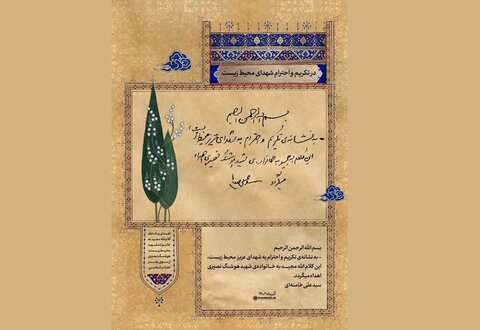 در تکریم و احترام شهدای محیط زیست
بسم الله الرحمن الرحیم
- به نشانه‌ی تکریم و احترام به شهدای عزیز محیط زیست،
این کلام الله مجید به خانواده‌ی شهید هوشنگ نصیری اهداء
میگردد. سیدعلی خامنه‌ای
بسم الله الرحمن الرحیم
- به نشانه‌ی تکریم و احترام به شهدای عزیز محیط زیست،
این کلام الله مجید به خانواده‌ی شهید هوشنگ نصیری
اهداء میگردد.
سیدعلی خامنه‌ای